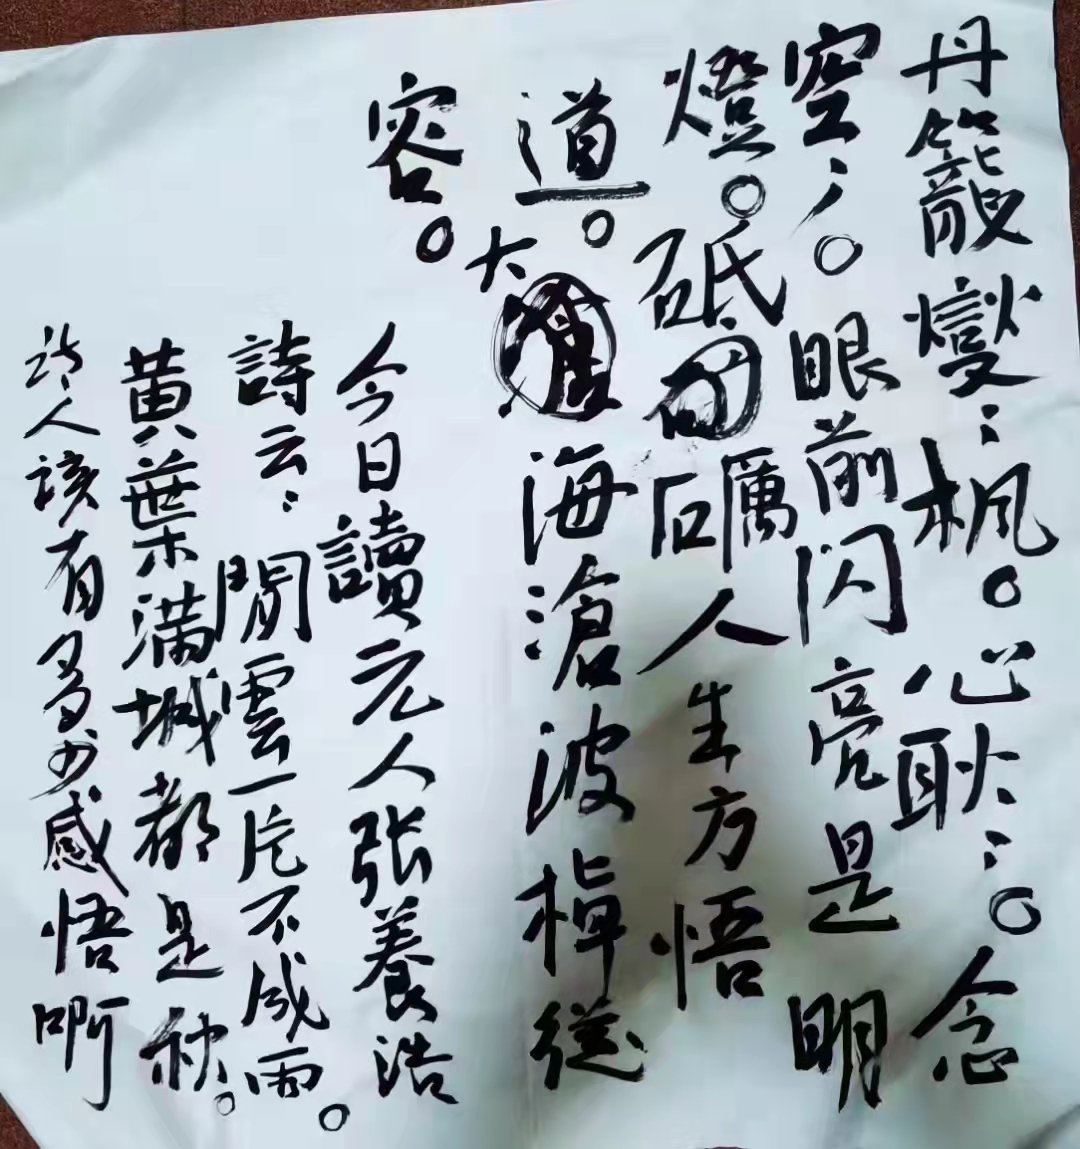 丹籠燮々枫。心耿々。念
空々。眼前闪亮是明
燈。砥礪人生方悟
道。大海滄波棹從
容。
今日讀元人张養浩
詩云：閒雲一片不成雨。
黄葉满城都是秋。
诗人该有多少感悟啊